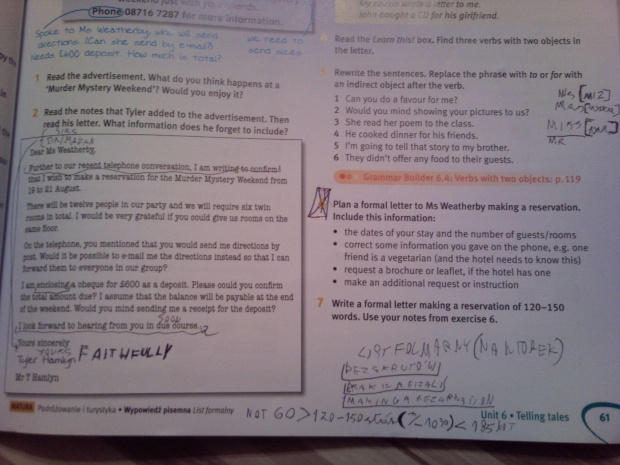 Phone 08716 7287 for more information.
Spoke to Ms Weatherby, who will send
directions. (Can she send by e-mail?)
Needs £600 deposit. How much is total?
we need to
send
1 Read the advertisement. What do you think happens at a
'Murder Mystery Weekend'? Would you enjoy it?
2 Read the notes that Tyler added to the advertisement. Then
read his letter. What information does he forget to include?
SIRS
SIR/MADAM
Dear Ms Weatherby,
Further to our recent telephone conversation, I am writing to confirm
that I wish to make a reservation for the Murder Mystery Weekend from
19 to 21 August.
There will be twelve people in our party and we will require six twin
rooms in total. I would be very grateful if you could give us rooms on the
same floor.
On the telephone, you mentioned that you would send me directions by
post. Would it be possible to e-mail me the directions instead so that I can
forward them to everyone in our group?
I am enclosing a cheque for £600 as a deposit. Please could you confirm
the total amount due? I assume that the balance will be payable at the end
of the weekend. Would you mind sending me receipt for the deposit?
SOON
I look forward to hearing from you in due course.
Yours sincerely
YOURS FAITHFULLY
Tyler Hamlyn
Mr T Hamlyn
MATURA Podróżowanie i turystyka • Wypowiedź pisemna List formalny
John bought a CD for his girlfriend.
Read the Learn this! box. Find three verbs with two objects in
the letter.
Rewrite the sentences. Replace the phrase with to or for with
an indirect object after the verb.
1 Can you do a favour for me?
2 Would you mind showing your pictures to us?
3 She read her poem to the class.
4 He cooked dinner for his friends.
5 I'm going to tell that story to my brother.
6 They didn't offer any food to their guests.
Ms [MIZ]
Mrs
MISS
MR
Grammar Builder 6.4: Verbs with two objects: p. 119
Plan a formal letter to Ms Weatherby making a reservation.
Include this information:
• the dates of your stay and the number of guests/rooms
• correct some information you gave on the phone, e.g. one
friend is a vegetarian (and the hotel needs to know this)
• request a brochure or leaflet, if the hotel has one
• make an additional request or instruction
7 Write a formal letter making a reservation of 120–150
words. Use your notes from exercise 6.
LIST FORMALNY (NA WTOREK)
BEZ SKRÓTÓW
MAKING A RESERVATION
NOT 60 > 120-150 słów (% 10%) < 185 NOT
Unit 6 • Telling tales 61